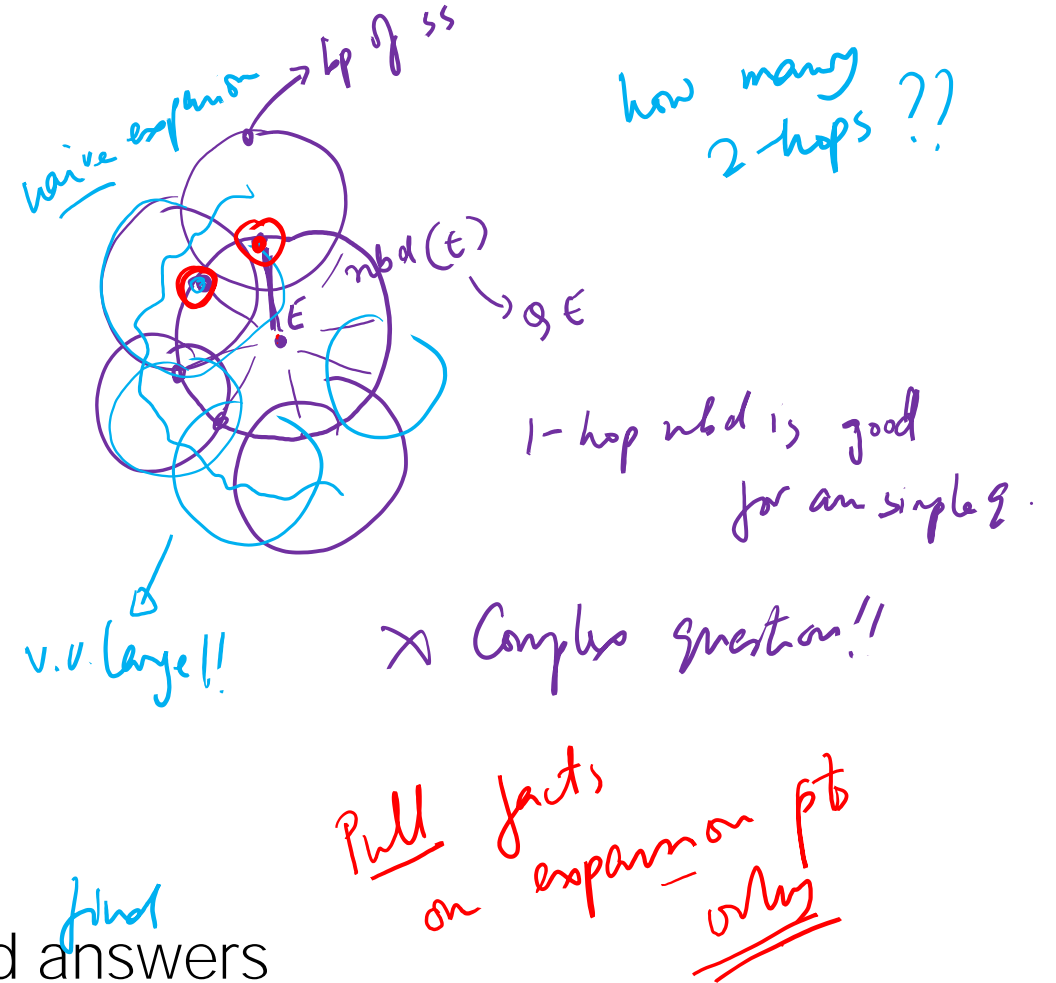 naive expansion
bp of ss
how many
2-hops ??
nbd (E)
E
Q E
1-hop nbd is good
for an simple q.
v.v. Large!!
X Complex question!!
Pull facts
on expansion pts
only
find
d answers